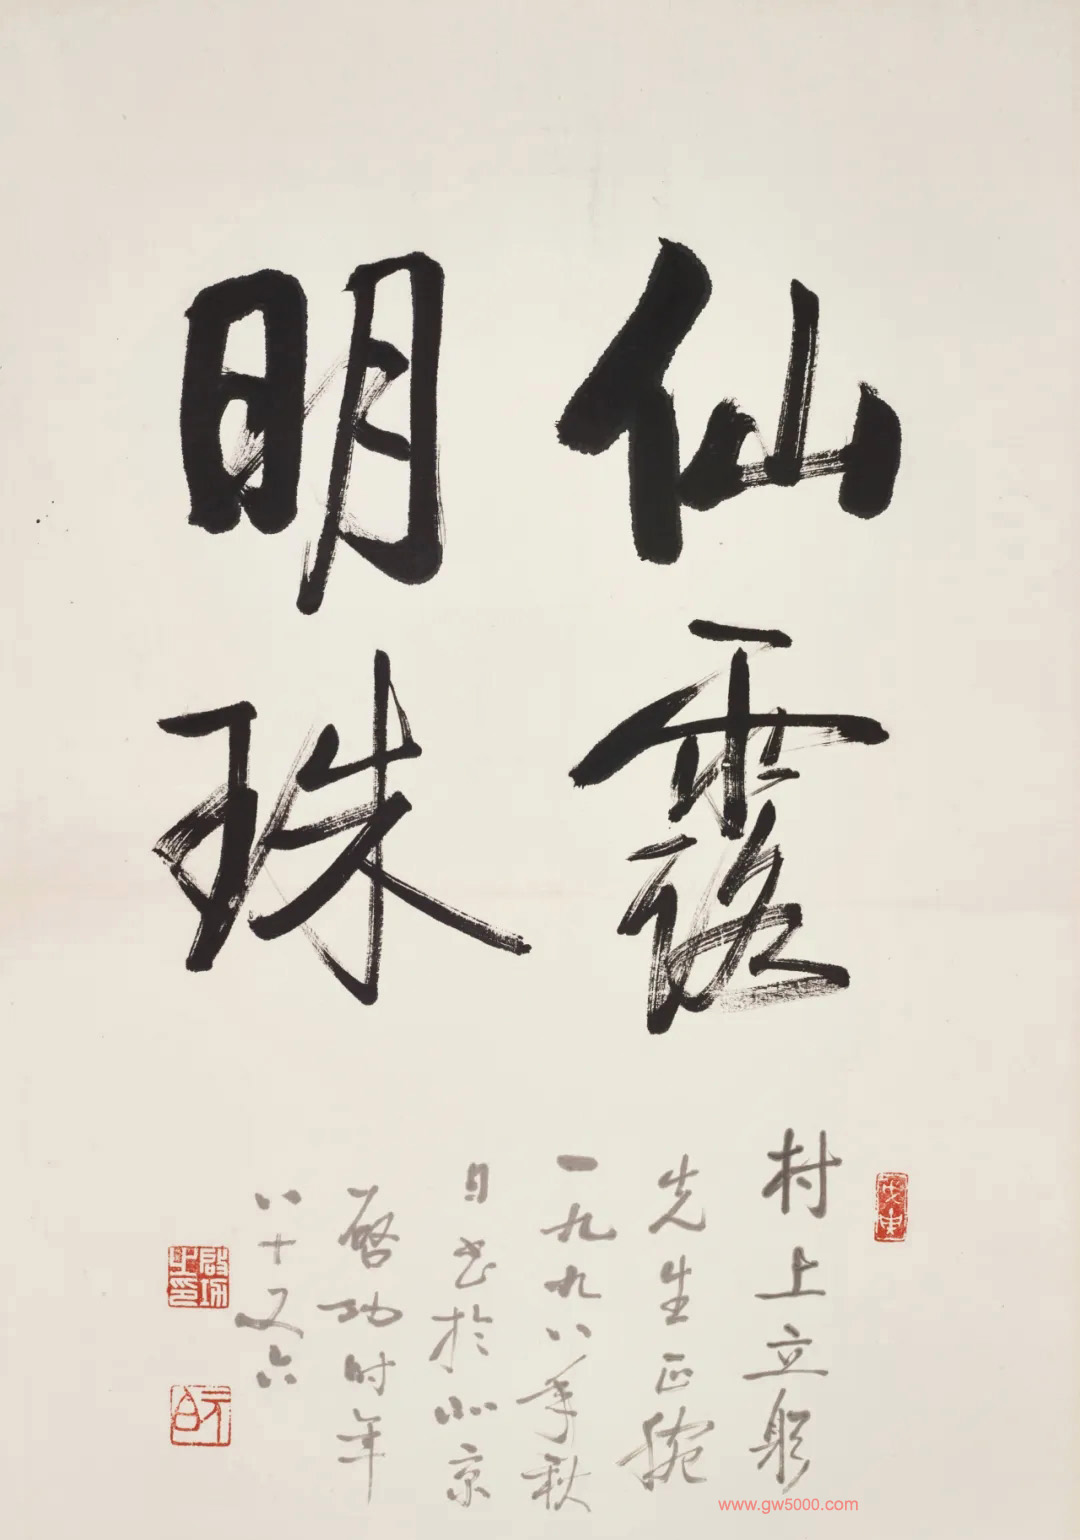 仙露
明珠
村上立躬
先生正腕
一九九八年秋
日书於北京
启功时年
八十又六
啟功之印
元白
www.gw5000.com